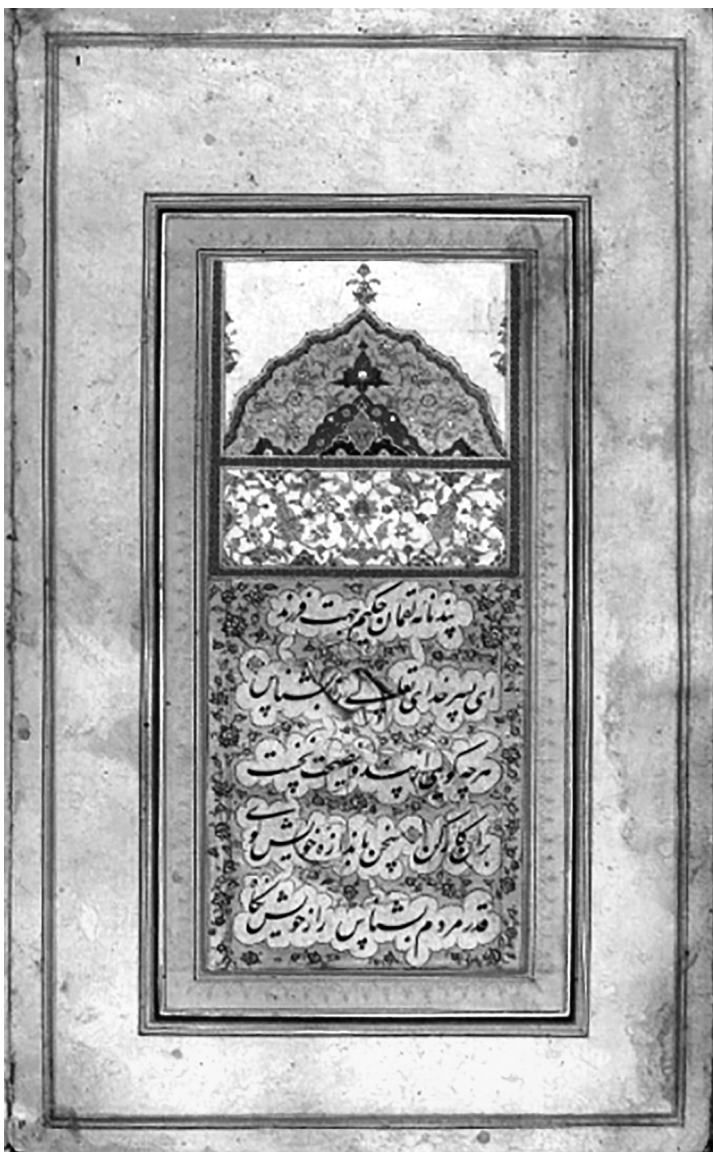 پند نامه لقمان حکیم جهت فرزند
ای پسر خدای تعالی را بشناس
هر چه گویی از پند و نصیحت نخست
بران کار کن سخن باندازه خویش گوی
قدر مردم بشناس راز خویش نگاه